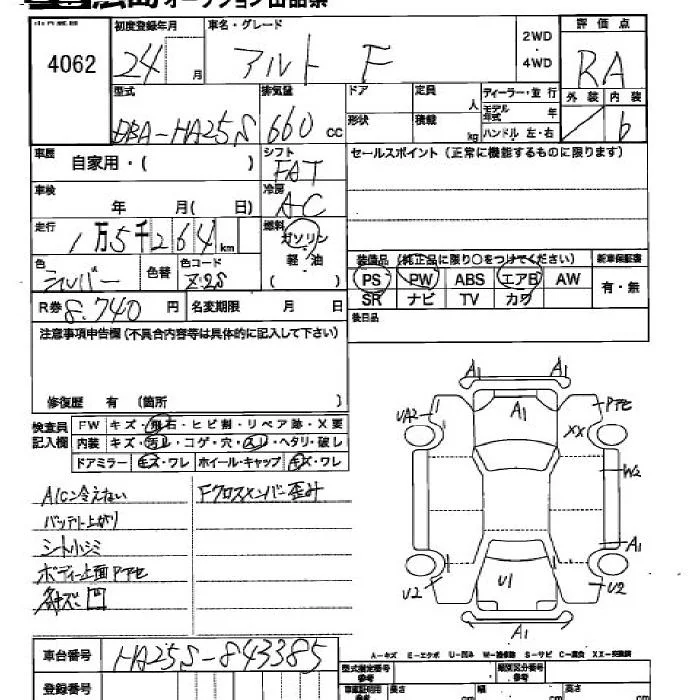 広島オークション出品票
4062
初度登録年月 車名・グレード 2WD ・ 4WD 評価点
24 月 アルト F RA
型式 排気量 ドア 定員 人 ディーラー・並行 外装 内装
DBA-HA25S 660 cc 形状 積載 kg モデル年式 年 ハンドル 左・右 b
車歴 自家用・( ) シフト FAT セールスポイント (正常に機能するものに限ります)
車検 年 月( 日) 冷房 AC
走行 1万5千264km 燃料 ガソリン 軽・油 ( )
色 シルバー 色替 色コード Z2S 装備品 (純正品に限り○をつけてください) 新車保証書
PS PW ABS エアB AW 有・無
SR ナビ TV カワ
R券 8.740 円 名変期限 月 日 後日品
注意事項申告欄(不具合内容等は具体的に記入して下さい)
修復歴 有 (箇所 )
検査員記入欄 FW キズ・飛石・ヒビ割・リペア跡・X要
内装 キズ・汚レ・コゲ・穴・スレ・ヘタリ・破レ
ドアミラー キズ・ワレ ホイール・キャップ キズ・ワレ
A/C冷えない Fクロスメンバー歪み
バッテリー上がり
シートシミ
ボディー上面Pアセ
凹
A1 A1
UA2 A1 Pアセ
XX
W2
A1
U2 U1 U2
A1
A-キズ E-エクボ U-凹み W-補修跡 S-サビ C-腐食 XX-交換済
車台番号 HA25S-843385 型式指定番号 類別区分番号
登録番号 長さ cm 幅 cm 高さ cm